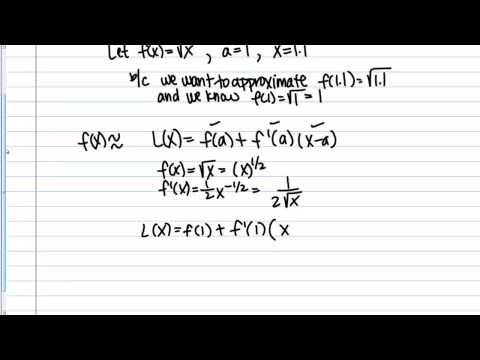 Let f(x)=√x , a=1 , x=1.1
b/c we want to approximate f(1.1)=√1.1
and we know f(1)=√1=1
f(x)≈ L(x)=f(a)+f'(a)(x-a)
f(x)=√x=(x)^1/2
f'(x)=1/2x^-1/2=1/2√x
L(x)=f(1)+f'(1)(x